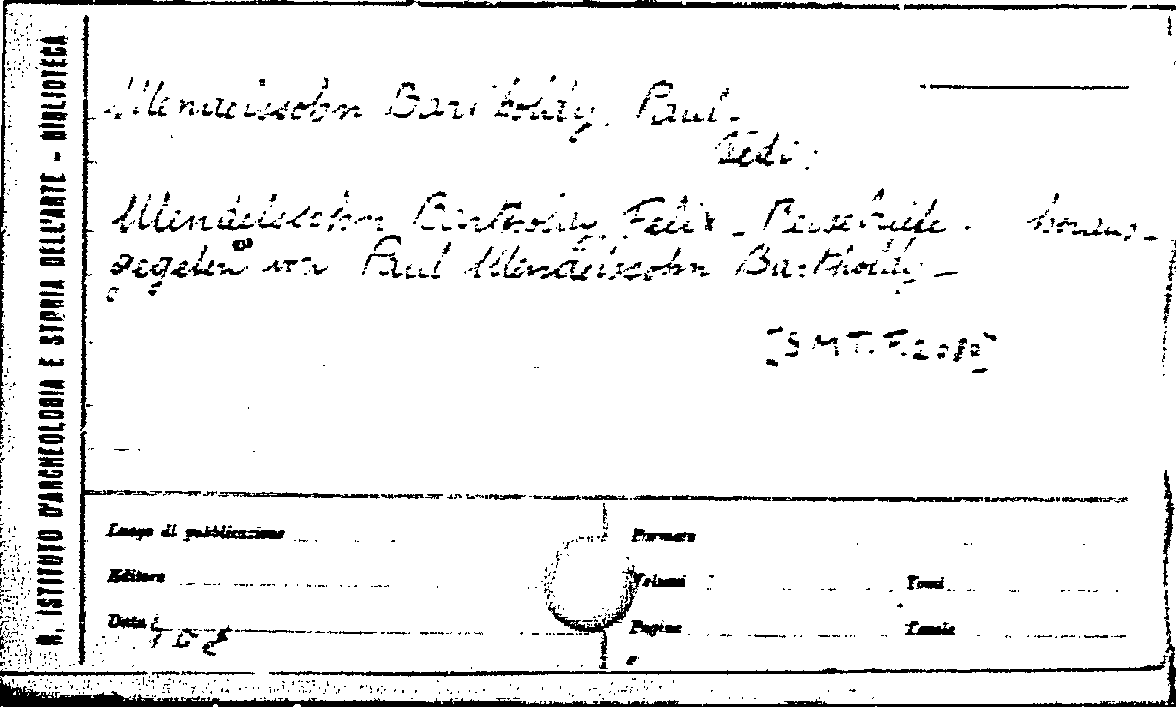 R. ISTITUTO D'ARCHEOLOGIA E STORIA DELL'ARTE - BIBLIOTECA
Mendelssohn Bartholdy, Paul -
Vedi:
Mendelssohn Bartholdy, Felix - Reisebriefe . heraus-
gegeben von Paul Mendelssohn Bartholdy -
Luogo di pubblicazione
Formato
Editore
Volumi
Tomi
Data
Pagine
Tavole